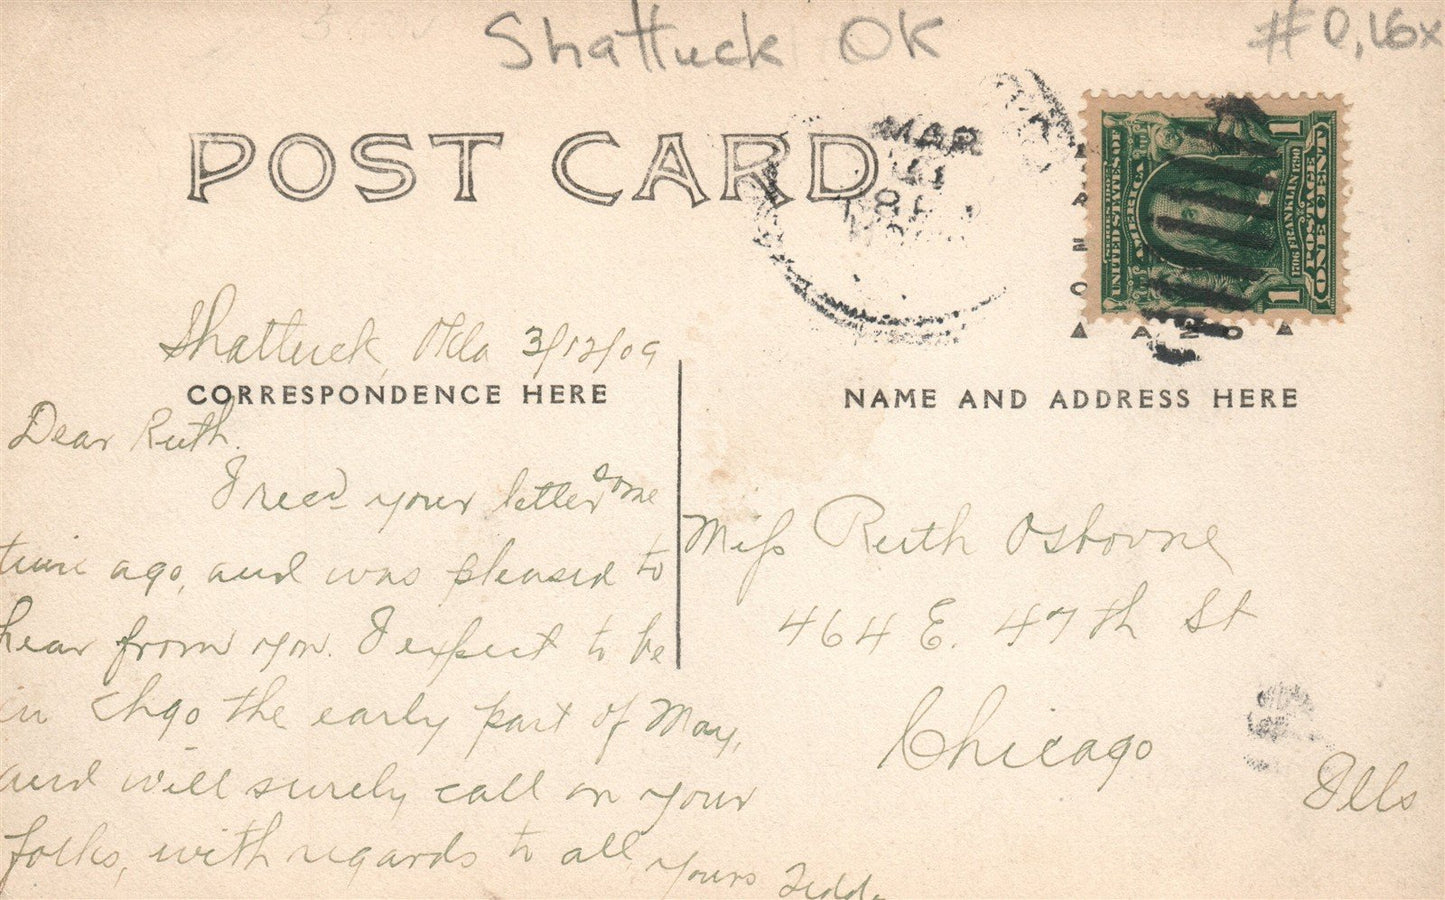 Shattuck OK
#0,16x
POST CARD
MAR
UNITED STATES OF AMERICA
1706 FRANKLIN 1790
POSTAGE
ONE CENT
1 1
AZO
Shattuck, Okla 3/12/09
CORRESPONDENCE HERE
NAME AND ADDRESS HERE
Dear Ruth,
I recd your letter some
time ago, and was pleased to
hear from you. I expect to be
in Chgo the early part of May,
and will surely call on your
folks, with regards to all, yours Teddy
Miss Ruth Osborne
464 E. 47th St
Chicago
Ills